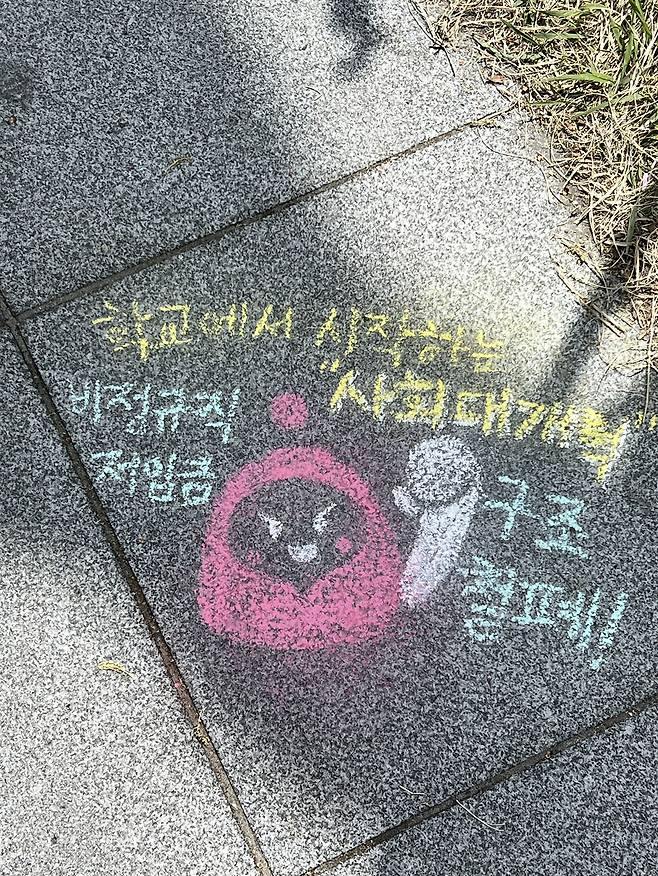 학교에서 시작하는
"사회대개혁"
비정규직
저임금
구조
철폐!!